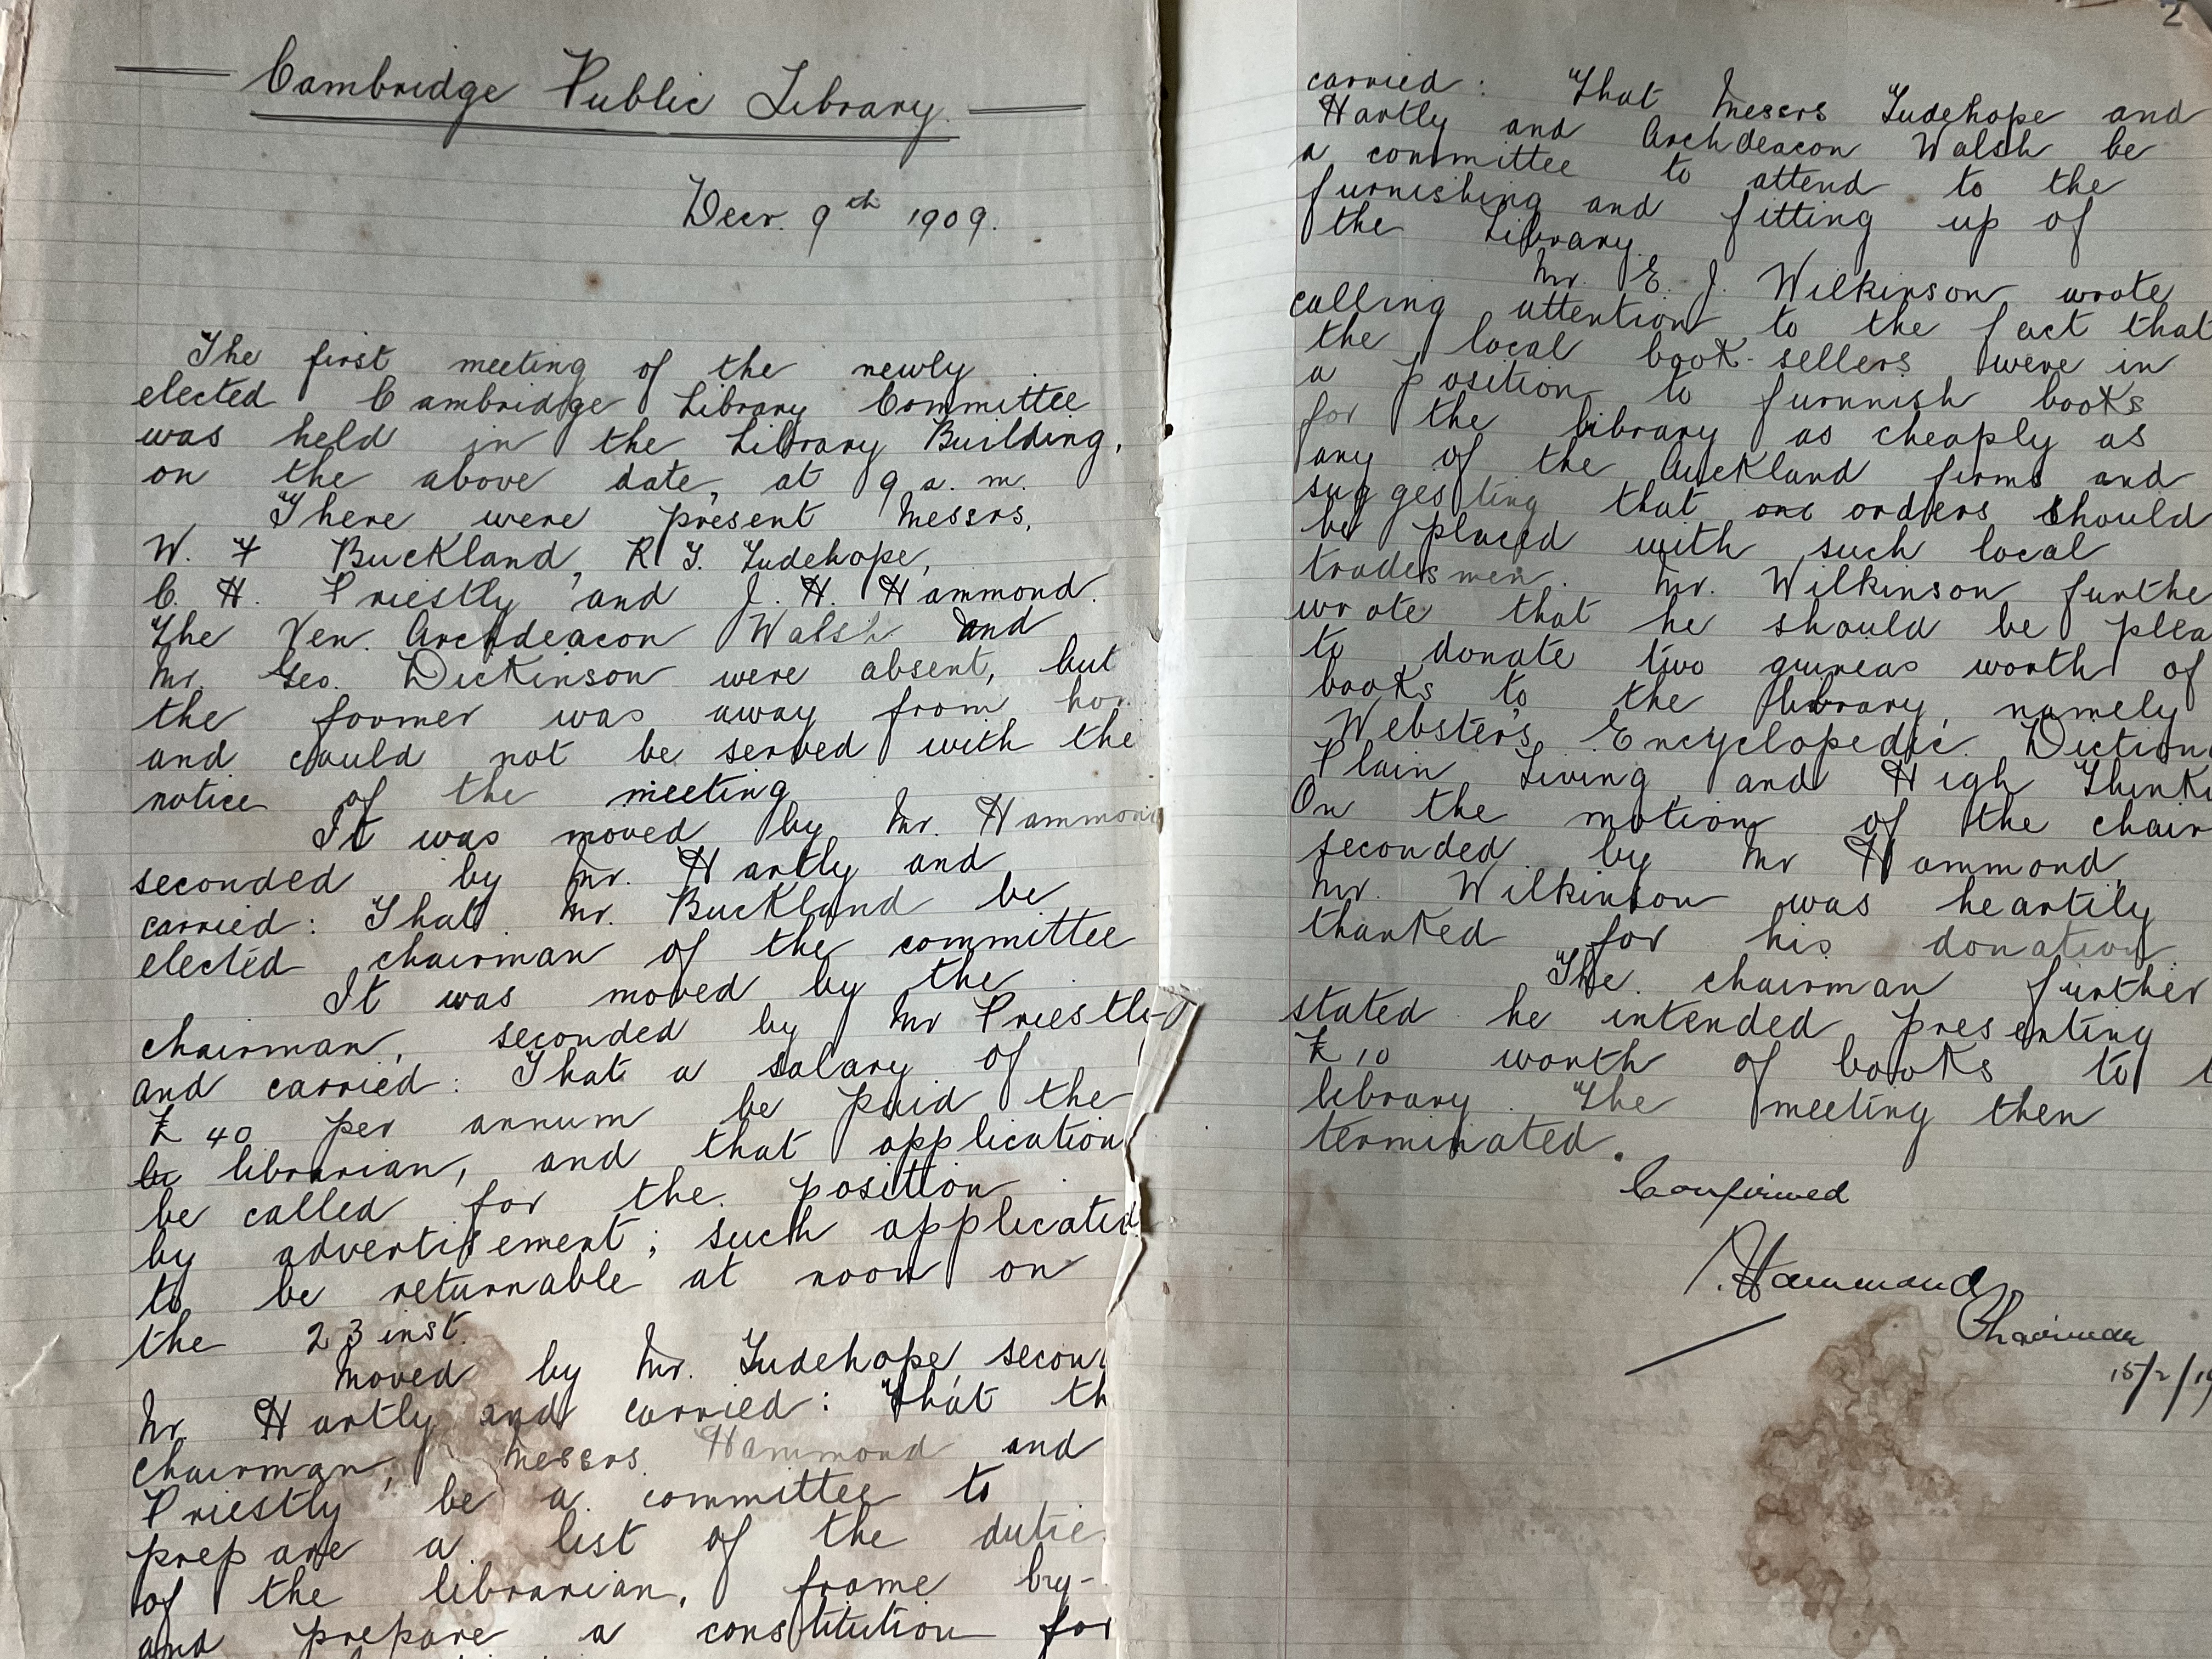 Cambridge Public Library.
Decr. 9th 1909.
The first meeting of the newly
elected Cambridge Library Committee
was held in the Library Building,
on the above date, at 9 a. m.
There were present Messrs.
W. F Buckland, R T. Tudehope,
C. H. Priestly and J. H. Hammond.
The Ven. Archdeacon Walsh and
Mr. Geo. Dickinson were absent, but
the former was away from
and could not be served with the
notice of the meeting
It was moved by Mr. Hammon
seconded by Mr. Hartly and
carried: That Mr. Buckland be
elected chairman of the committee
It was moved by the
chairman, seconded by Mr Priestl
and carried: That a salary of
£ 40 per annum be paid the
librarian, and that application
be called for the position
by advertisement; such applicati
to be returnable at noon on
the 23 inst.
Moved by Mr. Tudehope, secon
Mr. Hartly and carried: That th
chairman, Messrs. Hammond and
Priestly be a committee to
prepare a list of the dutie
of the librarian, frame by-
and prepare a constitution for
2
carried: That Messrs Tudehope and
Hartly and Archdeacon Walsh be
a committee to attend to the
furnishing and fitting up of
the Library.
Mr. E. J. Wilkinson wrote
calling attention to the fact that
the local book-sellers were in
a position to furnnish books
for the library as cheaply as
any of the Auckland firms and
suggesting that orders should
be placed with such local
tradesmen. Mr. Wilkinson furthe
wrote that he should be plea
to donate two guineas worth of
books to the library, namely
Webster's Encyclopedic Diction
Plain Living and High Thinki
On the motion of the chair
seconded by Mr Hammond,
Mr. Wilkinson was heartily
thanked for his donation.
The chairman further
stated he intended presenting
£ 10 worth of books to t
library. The meeting then
terminated.
Confirmed
Hammond
Chairman
15/2/19